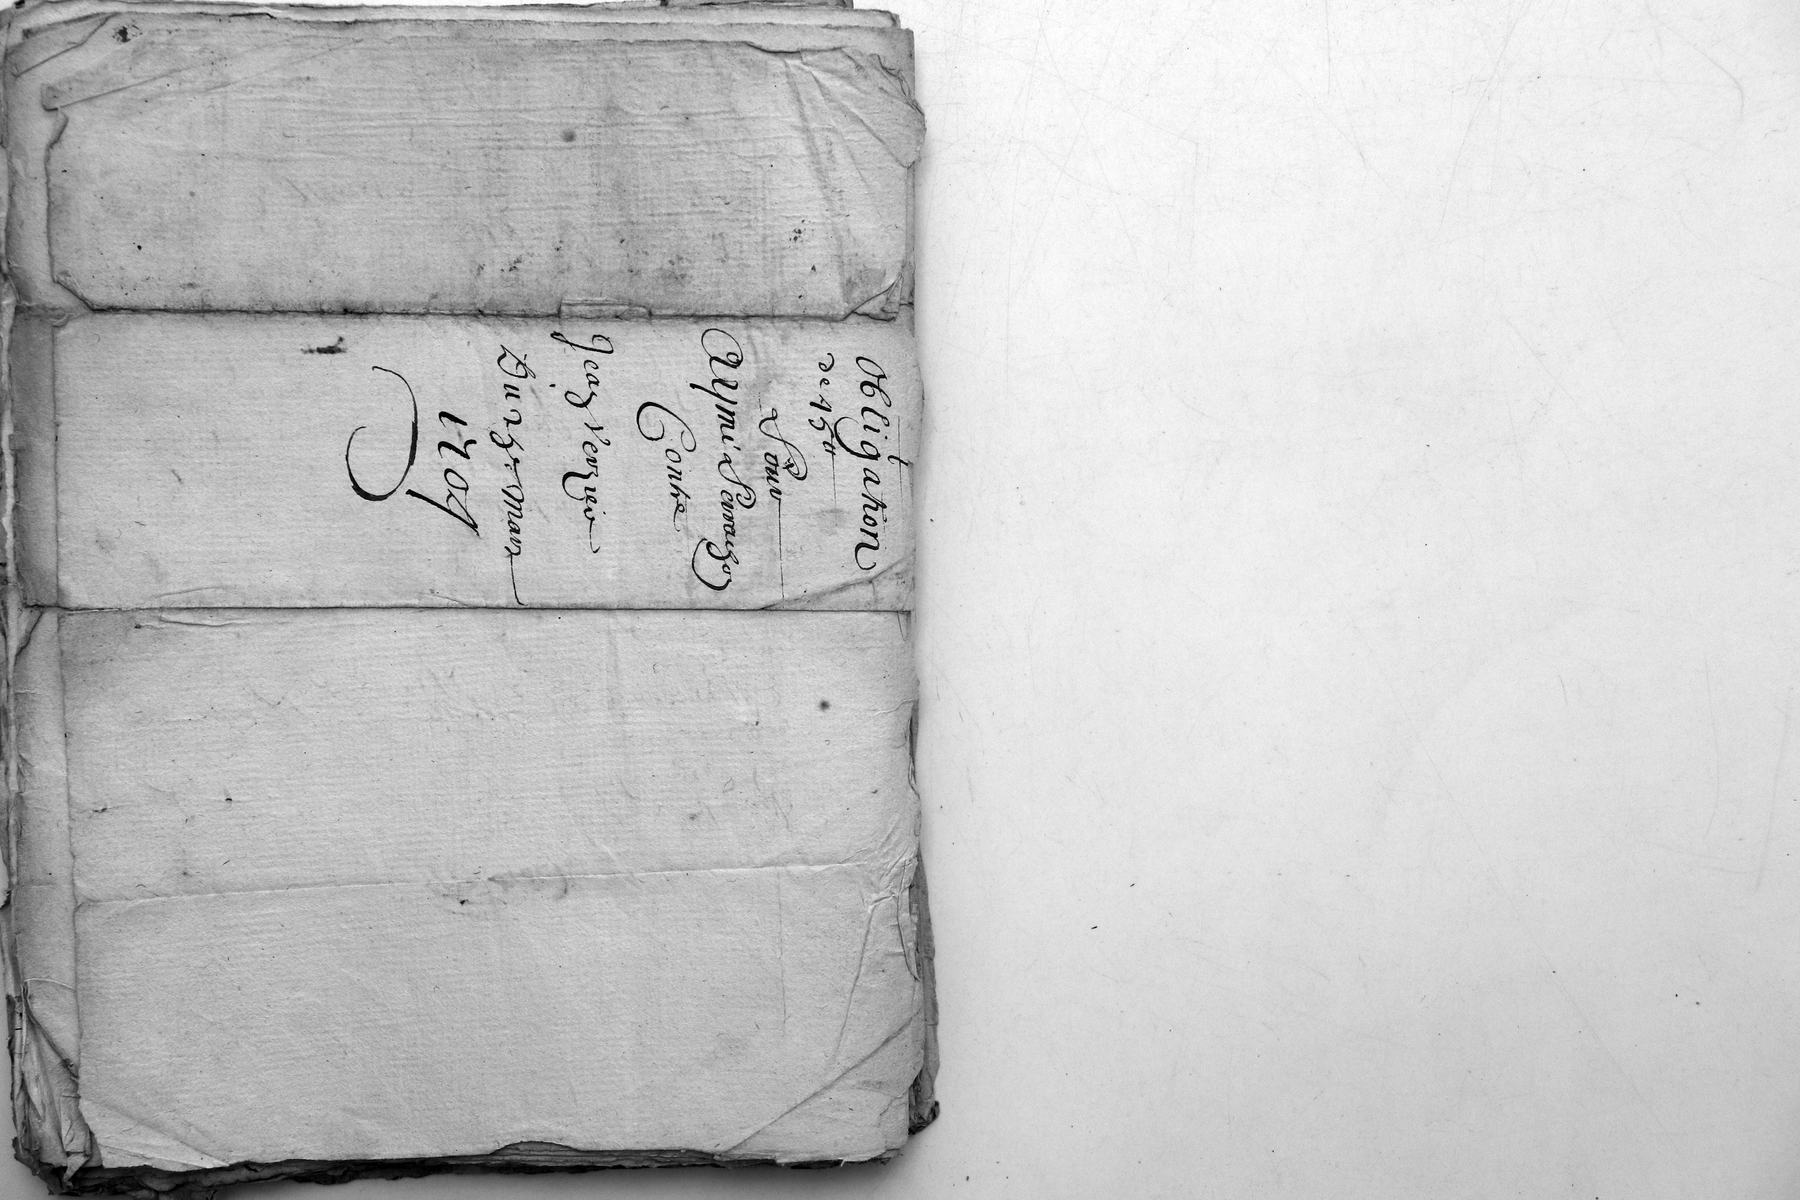 Obligation
de 45tt
Pour
Aymé Perrachon
Contre
Jean Verzier
Du 27e mars
1704